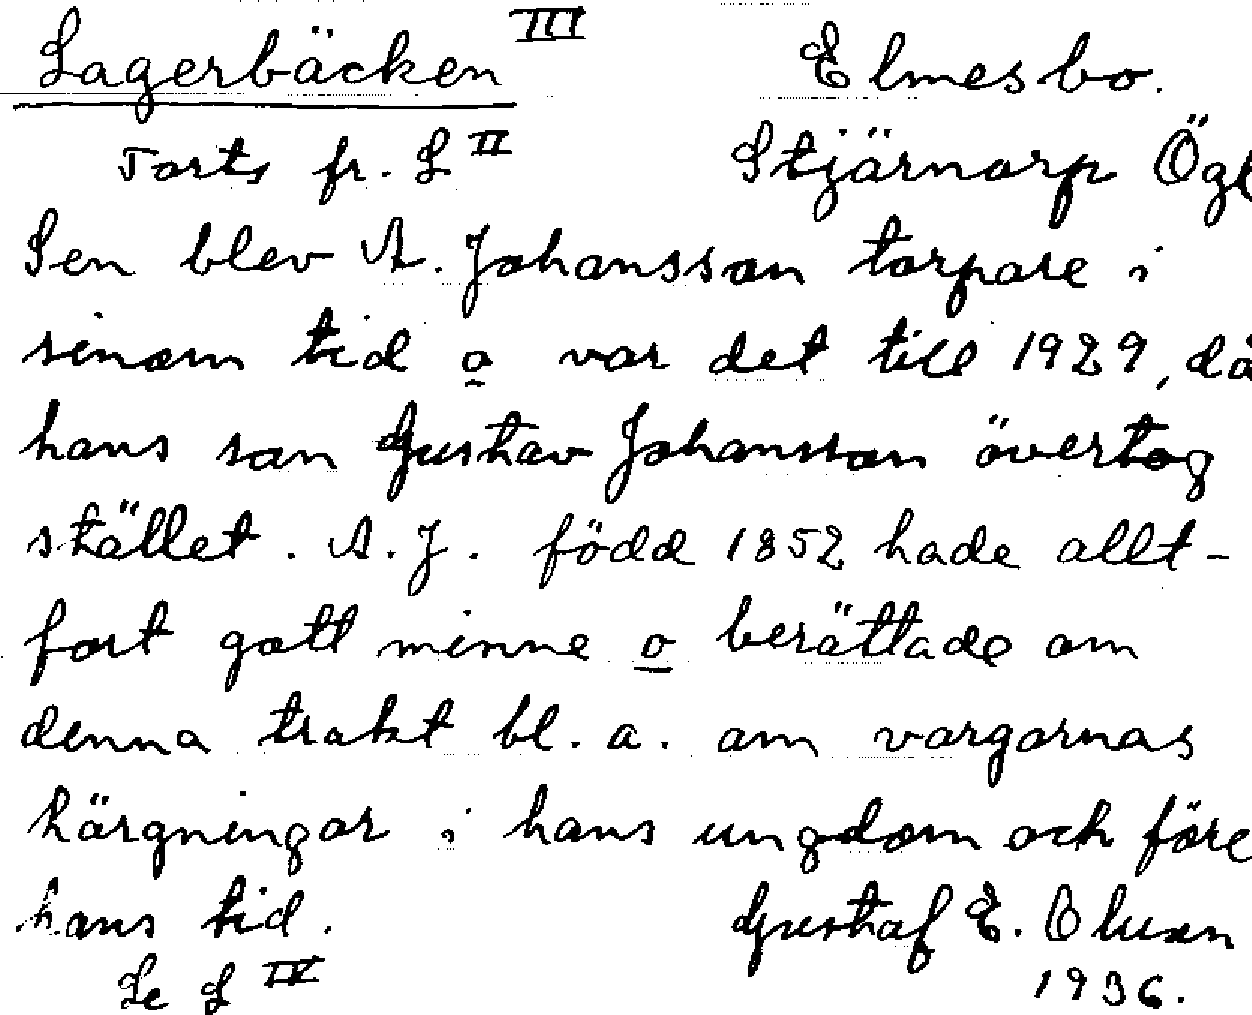 Lagerbäcken III Elmesbo.
Forts fr. L II Stjärnorp Ögl
Sen blev A. Johansson torpare i
sinom tid o var det till 1929, då
hans son Gustav Johansson övertog
stället. A. J. född 1852 hade allt-
fort gott minne o berättade om
denna trakt bl. a. om vargarnas
härgningar i hans ungdom och före
hans tid. Gustaf E. Olusn
Se L IV 1936.